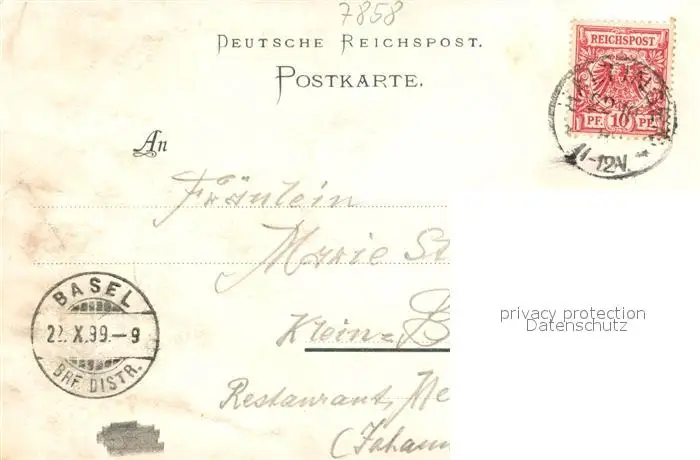 7858
DEUTSCHE REICHSPOST.
POSTKARTE.
REICHSPOST
PF. 10 PF.
11-12V.
An
Fräulein
Marie St
Klein-B
Restaurant,
(Johann
BASEL
22. X. 99.-9
BRF. DISTR.
privacy protection
Datenschutz